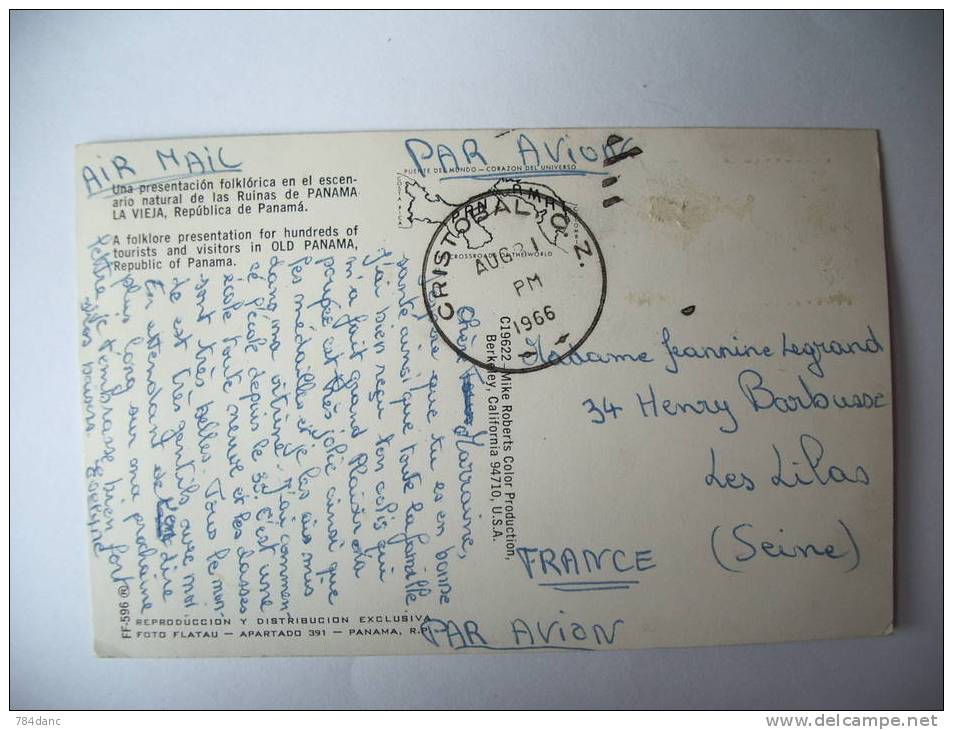 AIR MAIL
PAR AVION
Una presentación folklórica en el escen-
ario natural de las Ruinas de PANAMA
LA VIEJA, República de Panamá.
A folklore presentation for hundreds of
tourists and visitors in OLD PANAMA,
Republic of Panama.
PUENTE DEL MUNDO — CORAZON DEL UNIVERSO
CROSSROADS OF THE WORLD
CRISTOBAL, C. Z.
AUG 21
PM
1966
C19622—Mike Roberts Color Production,
Berkeley, California 94710, U.S.A.
Chère Marraine,
que tu es en bonne
santé ainsi que toute la famille
J'ai bien reçu ton colis qui
m'a fait grand plaisir. La
poupée est très jolie ainsi que
les médailles et je les ai mis
dans ma vitrine. J'ai commen-
cé l'école depuis le C'est une
école toute neuve et les classes
sont très belles. Tous le mon-
de est très gentils avec moi
En attendant de dire
plus long sur ma prochaine
lettre je t'embrasse bien fort
Gros baisers.
Madame Jeannine Legrand
34 Henry Barbusse
Les Lilas
(Seine)
FRANCE
PAR AVION
FF-596 ®
REPRODUCCION Y DISTRIBUCION EXCLUSIVA
FOTO FLATAU — APARTADO 391 — PANAMA, R.P.
784danc
delcampe.net